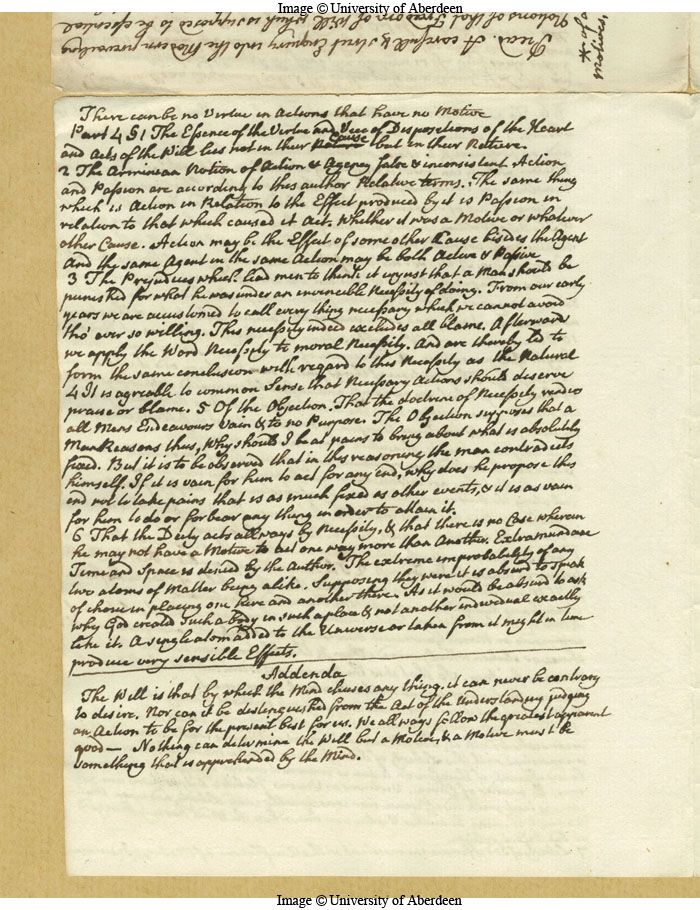 Image © University of Aberdeen
Edward. A carefull & strict Enquiry into the Modern prevailing
Notions of that Freedome of Will which is supposed to be essential
There can be no Virtue in Actions that have no Motive
Part 4 § 1 The Essence of the Virtue and Vice of Dispositions of the Heart
and Acts of the Will lies not in their Nature Cause but in their Nature.
2 The Arminian Notion of Action & Agency false & inconsistent Action
and Passion are according to this author Relative terms. The same thing
which is Action in Relation to the Effect produced by it is Passion in
relation to that which caused it Act. Whether it was a Motive or whatever
other Cause. Action may be the Effect of some other Cause besides the Agent
And the same Agent in the same Action may be both Active & Passive
3 The Prejudices which lead men to think it unjust that a Man should be
punished for what he was under an invincible Necessity of doing. From our early
years we are accustomed to call every thing necessary which we cannot avoid
tho' ever so willing. This necessity indeed excludes all blame. Afterward
we apply the Word Necessity to moral Necessity. And are thereby led to
form the same conclusion with regard to this Necessity as the Natural
4 It is agreable to common Sense that Necessary Actions should deserve
praise or blame. 5 Of the Objection. That the doctrine of Necessity renders
all Mens Endeavours Vain & to no Purpose. The Objection supposes that a
Man Reasons thus, Why should I be at pains to bring about what is absolutely
fixed. But it is to be observed that in this reasoning the man contradicts
himself. If it is vain for him to act for any end, why does he propose this
end not to take pains that is as much fixed as other events, & it is as vain
for him to do or forbear any thing in order to attain it.
6 That the Deity acts allways by Necessity, & that there is no Case wherein
he may not have a Motive to act one way more than Another. Extramundane
Time and Space is denied by the Author. The extreme improbability of any
two atoms of Matter being alike. Supposing they were it is absurd to speak
of choise in placing one here and another there. As it would be absurd to ask
why God created such a body in such a place & not another individual exactly
like it. A single atom added to the Universe or taken from it might in time
produce very sensible Effects.
Addenda
The Will is that by which the Mind chuses any thing. it can never be contrary
to desire. Nor can it be distinguished from the Act of the Understanding judging
an Action to be for the present best for us. We allways follow the greatest apparent
good — Nothing can determine the Will but a Motive, & a Motive must be
something that is apprehended by the Mind.
Image © University of Aberdeen